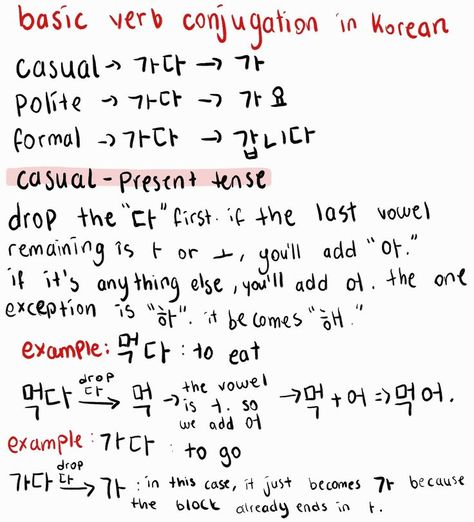 basic verb conjugation in Korean
casual → 가다 → 가
Polite → 가다 → 가요
formal → 가다 → 갑니다
casual - Present tense
drop the "다" first. if the last vowel
remaining is ㅏ or ㅗ, you'll add "아."
if it's anything else, you'll add 어. the one
exception is "하". it becomes "해."
example: 먹다 : to eat
먹다 drop 다 → 먹 → the vowel is ㅓ. so we add 어 → 먹 + 어 => 먹어.
example: 가다 : to go
가다 drop 다 → 가 : in this case, it just becomes 가 because
the block already ends in ㅏ.